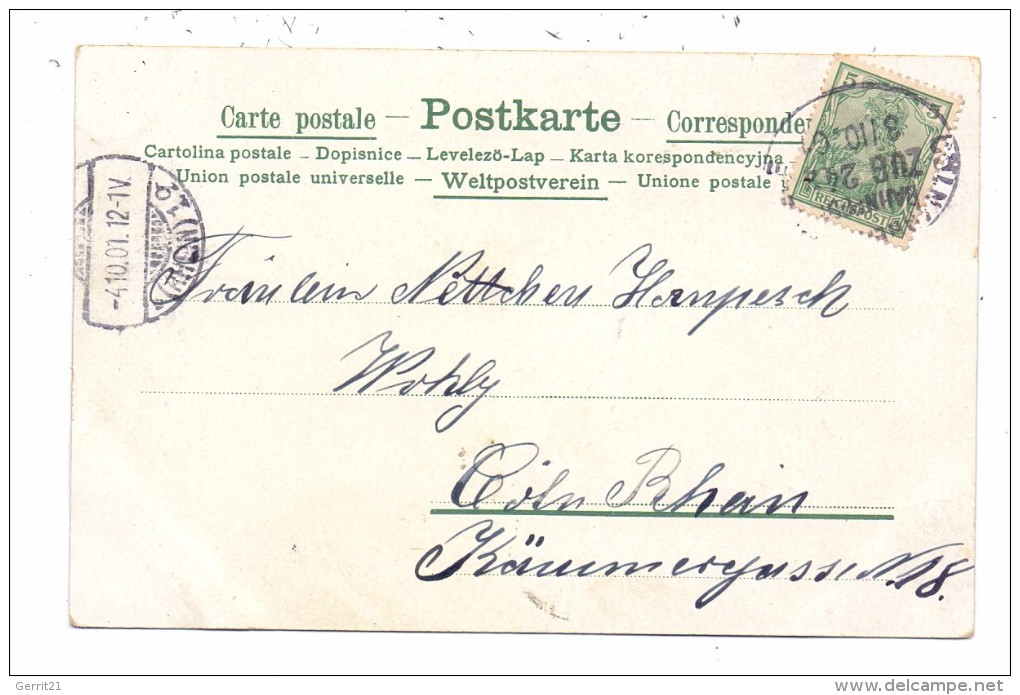 Carte postale — Postkarte — Corresponden
Cartolina postale – Dopisnice – Levelező-Lap – Karta korespondencyjna –
Union postale universelle – Weltpostverein – Unione postale u
5 5
REICHSPOST
BAHN
ZUG 24
3/10
CÖLN
-4.10.01.12-1V.
Fräulein Nettchen Hanpesch
Wohlg
Cöln Rhein
Kämmergasse N. 18.
Gerrit21
www.delcampe.net